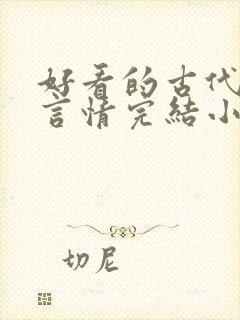 好看的古代
言情完結小
切尼